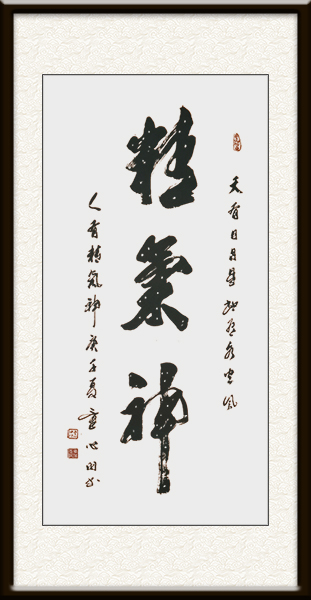 天有日月星地有水火風
精氣神
人有精氣神庚子夏童心田书